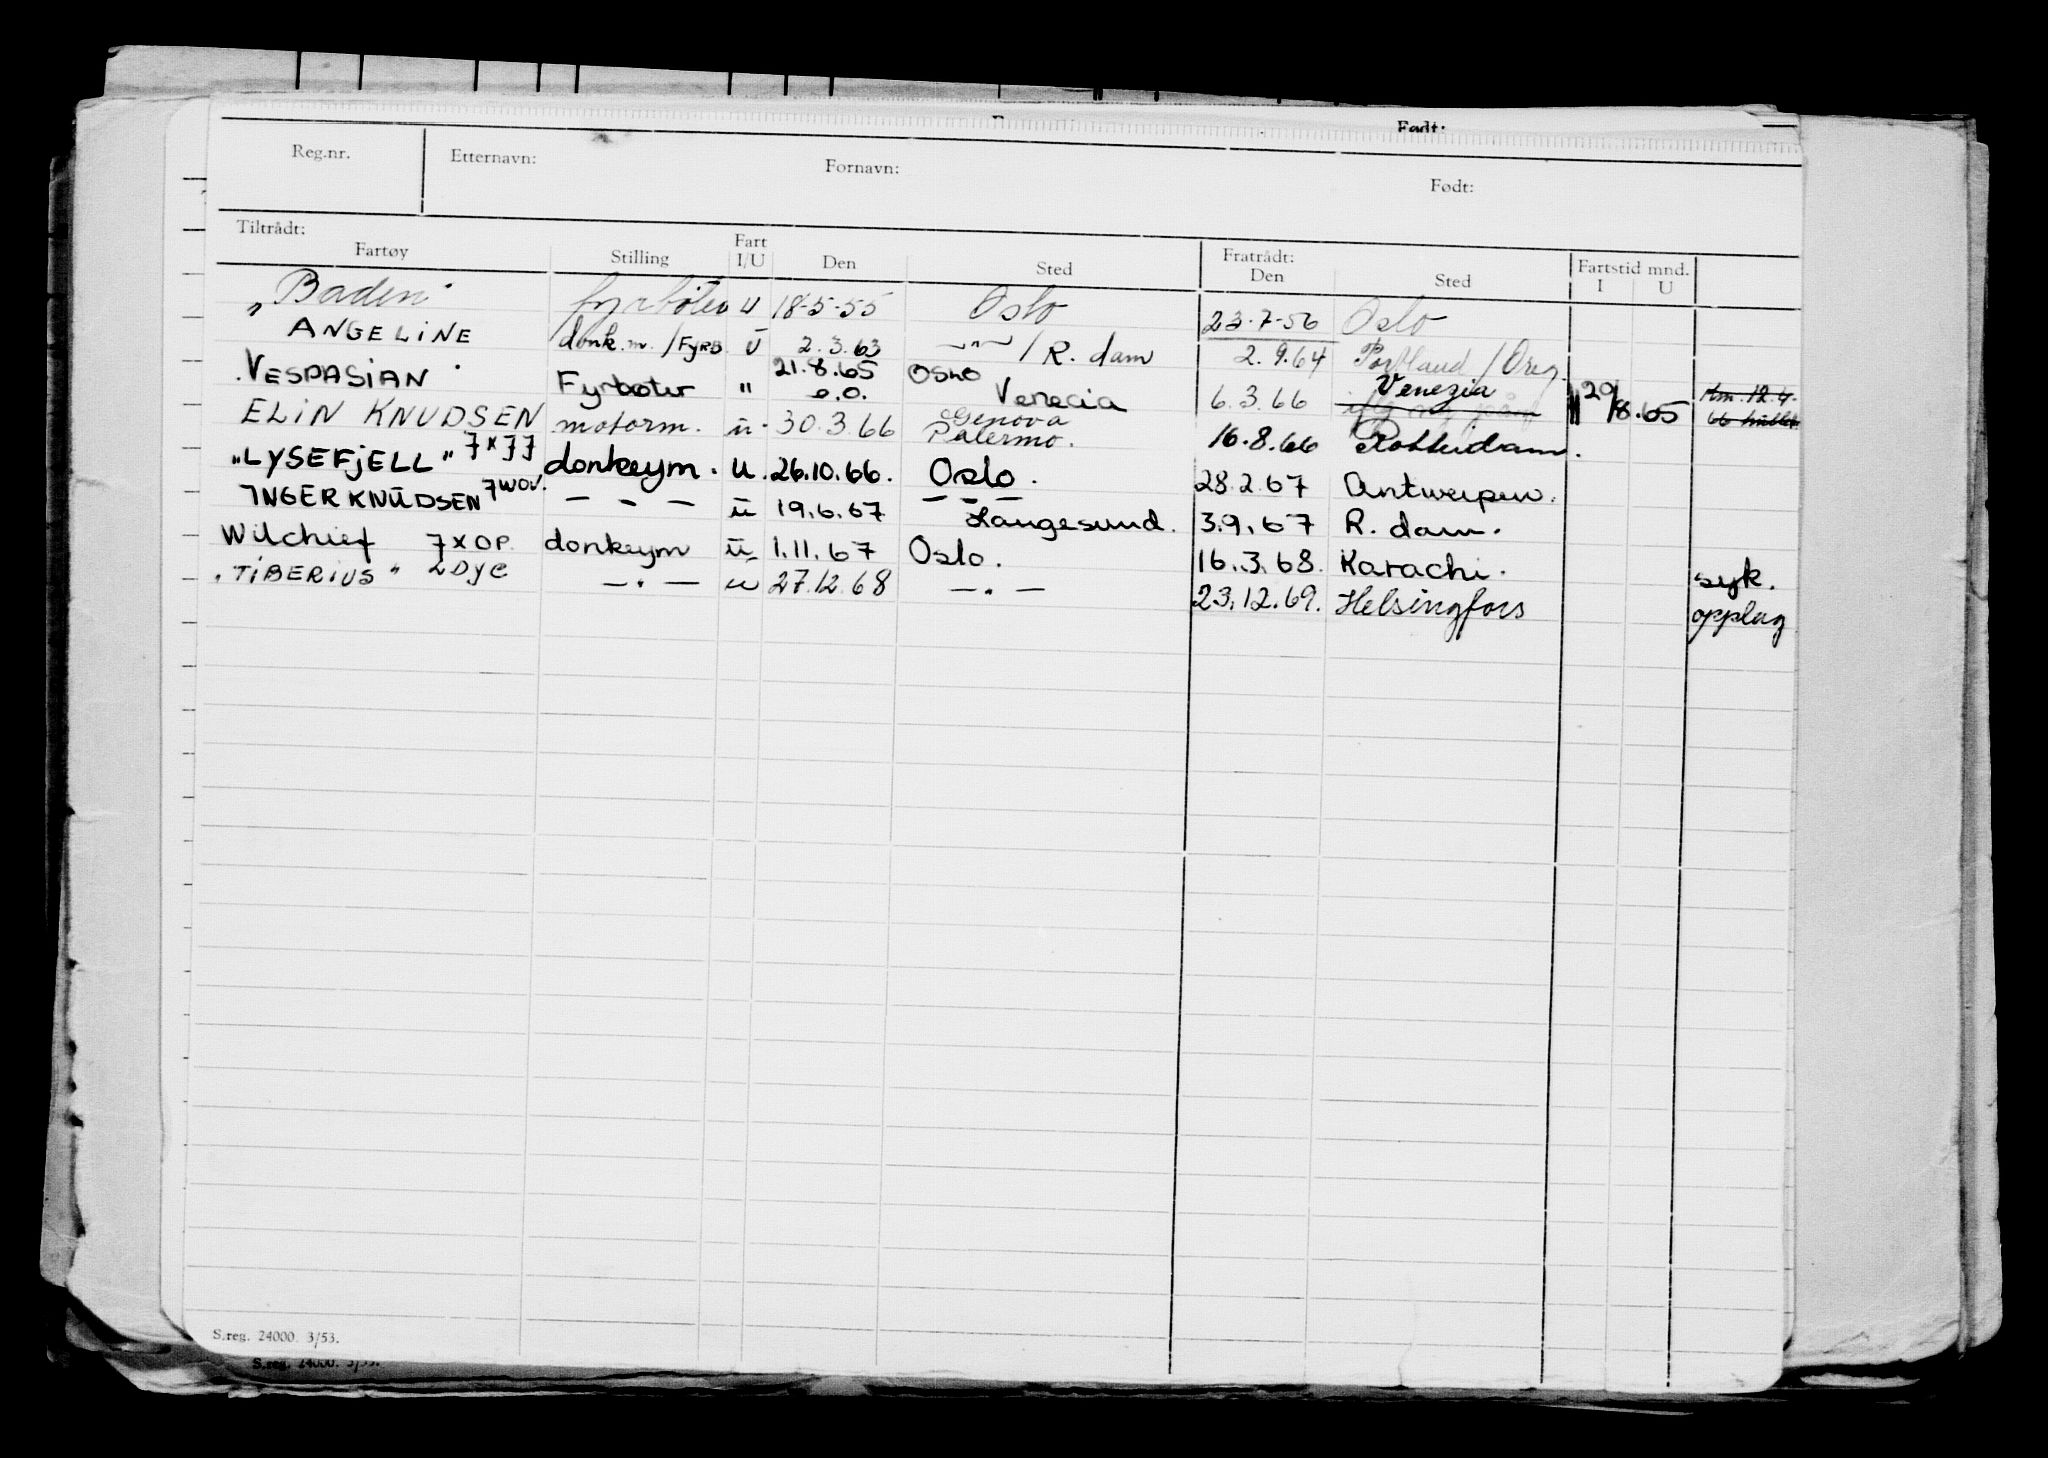 Født:
Reg.nr. Etternavn: Fornavn: Født:
Tiltrådt: Fratrådt:
Fartøy Stilling Fart I/U Den Sted Den Sted Fartstid mnd. I U
"Baden" fyrbøter u 18-5-55 Oslo 23-7-56 Oslo
ANGELINE donk.m./FYRB. U 2.3.63 —"—/R. dam 2.9.64 Portland/Oreg.
"VESPASIAN" Fyrbøter " 21.8.65 e.o. OSLO Venecia 6.3.66 Venezia 29/8.65 12.4. 66
ELIN KNUDSEN motorm. u. 30.3.66 Genova Palermo. 16.8.66 Rotterdam.
"LYSEFJELL" 7×JJ donkeym. U. 26.10.66. Oslo. 28.2.67 Antwerpen.
INGER KNUDSEN 7WOV. — " — u 19.6.67 Langesund. 3.9.67 R. dam.
Wilchief 7×OP. donkeym u 1.11.67 Oslo. 16.3.68. Karachi. syk.
"TIBERIUS" LDYC — " — u 27.12.68 — " — 23.12.69. Helsingfors opplag
S.reg. 24000. 3/53.
S.reg. 24000. 3/53.